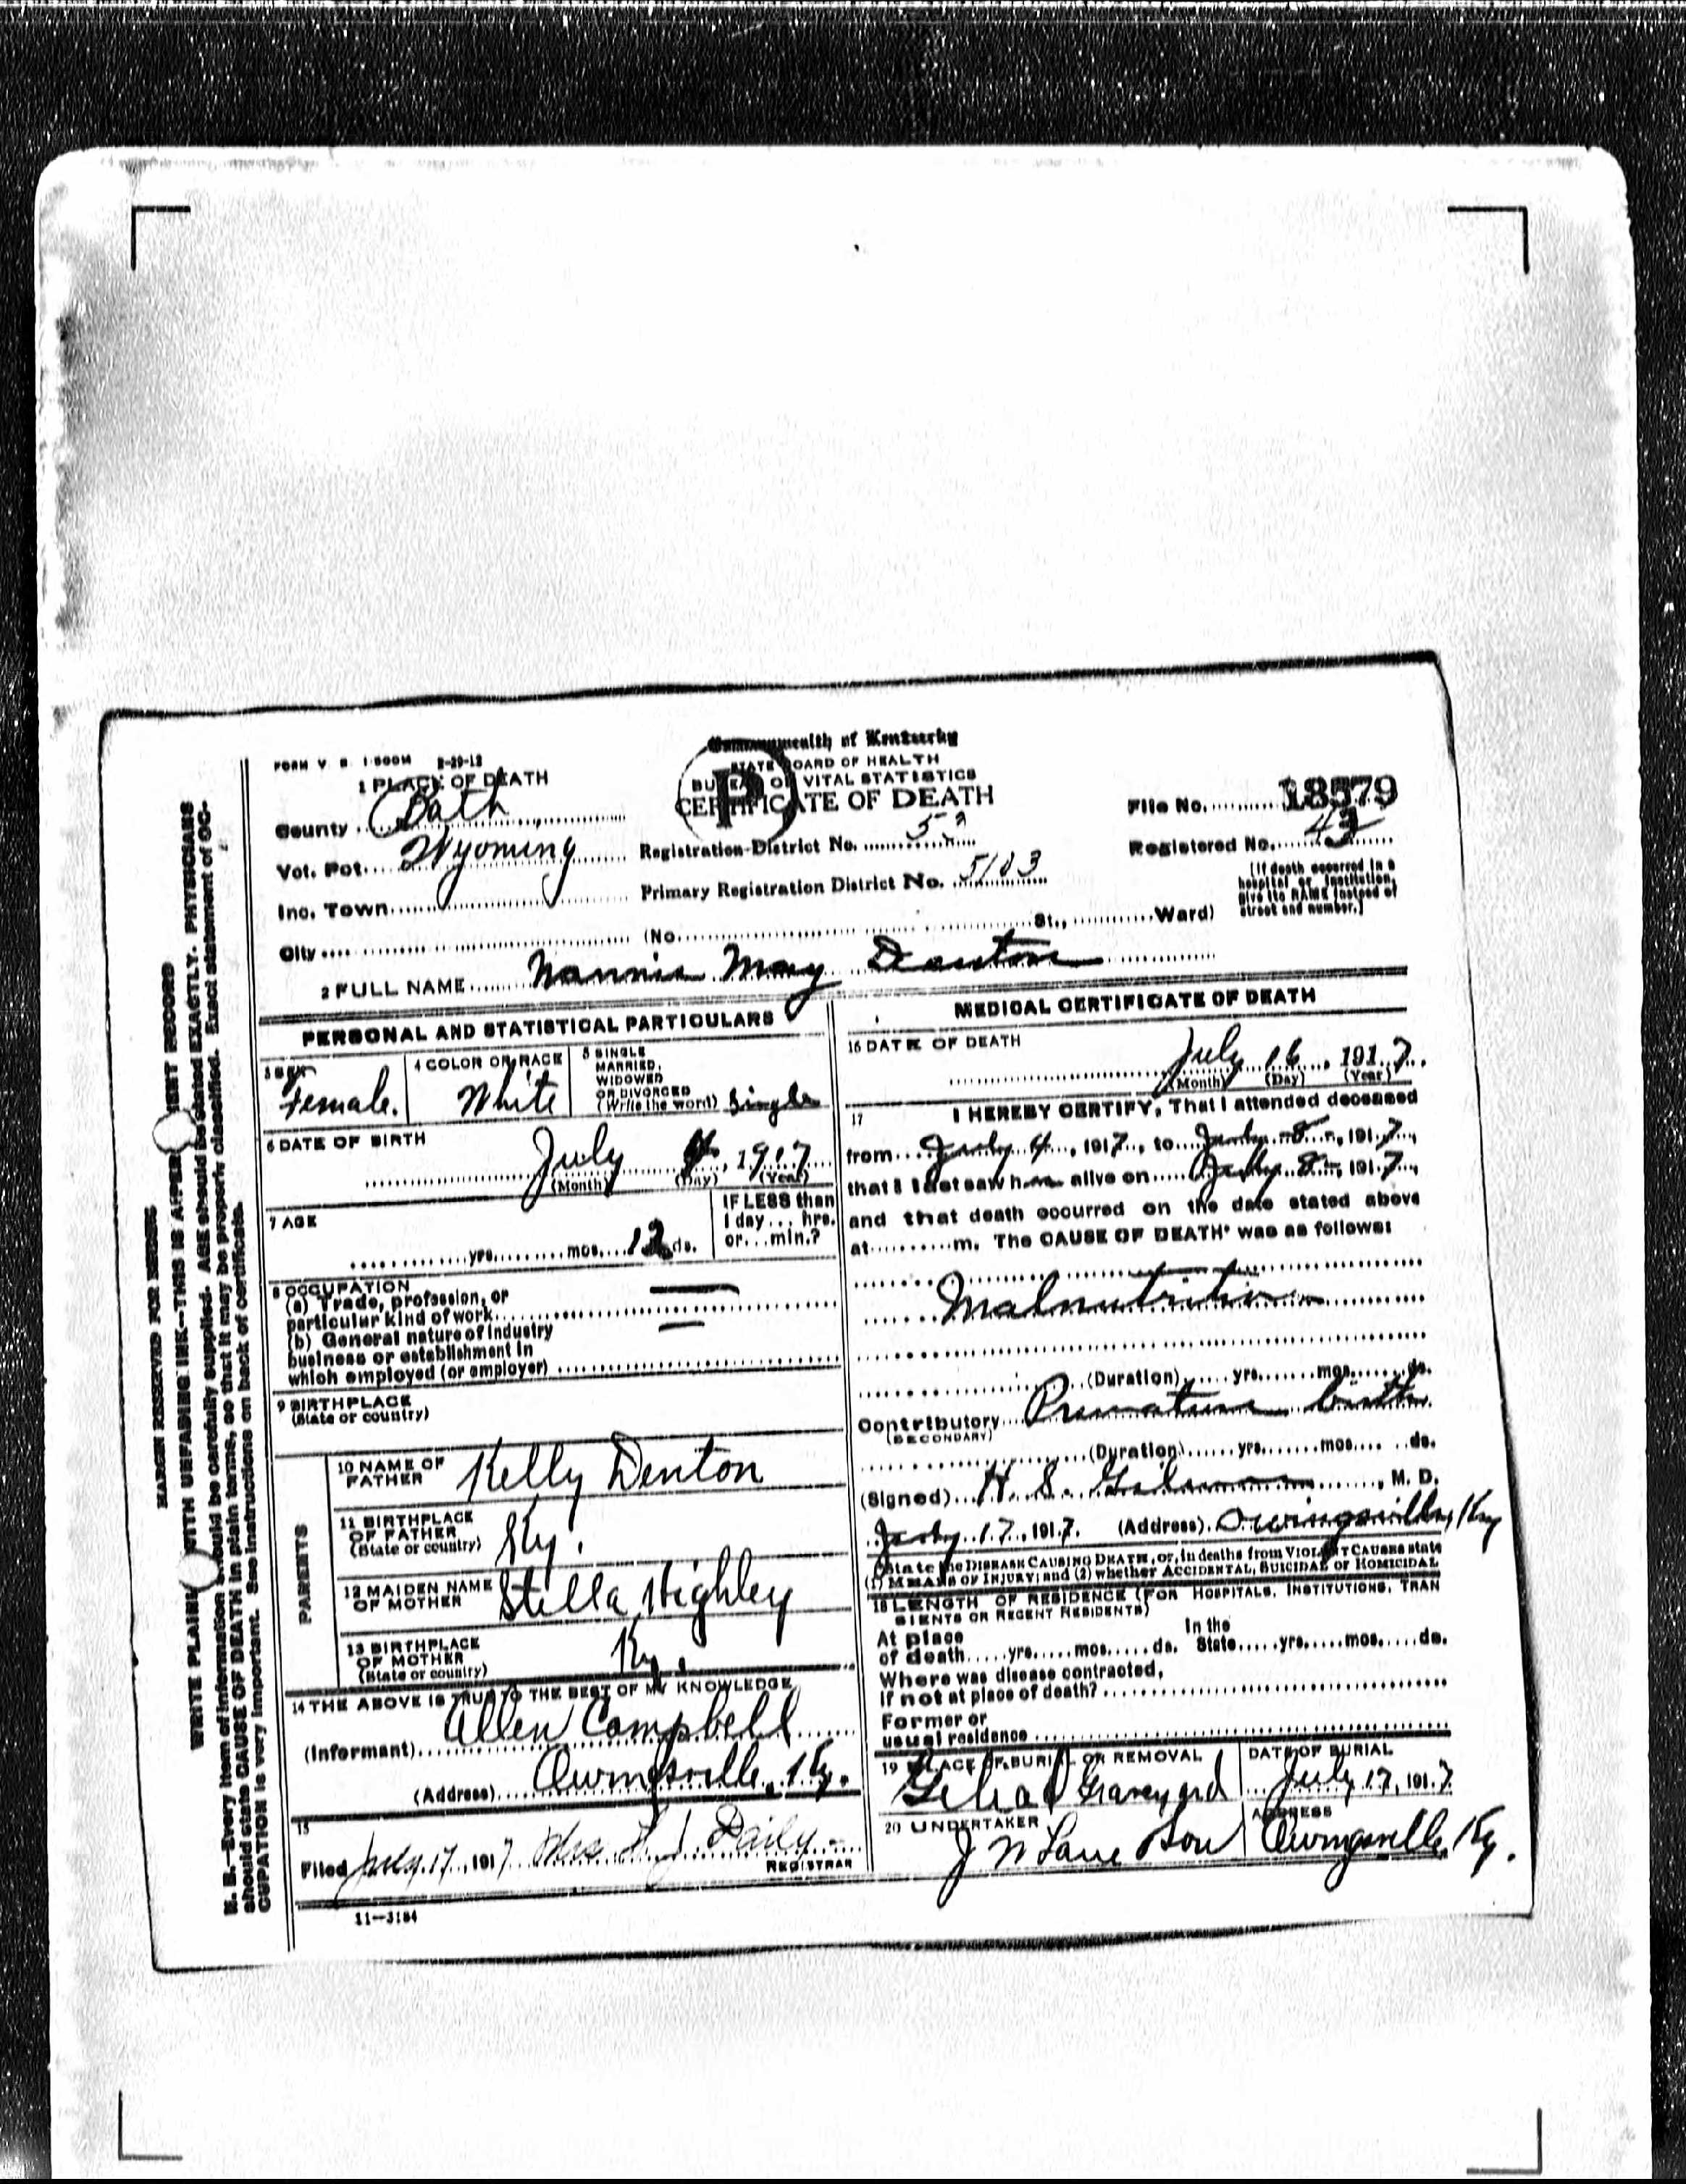 FORM V. S. 1-500M 2-29-12
Commonwealth of Kentucky
STATE BOARD OF HEALTH
BUREAU OF VITAL STATISTICS
CERTIFICATE OF DEATH
P
1 PLACE OF DEATH
County Bath
Vot. Pct. Wyoming
Inc. Town
City (No. St., Ward)
Registration District No.
Primary Registration District No. 5103
File No. 18579
Registered No. 43
[If death occurred in a
hospital or institution,
give its NAME instead of
street and number.]
2 FULL NAME Nannie May Denton
PERSONAL AND STATISTICAL PARTICULARS
3 SEX
Female.
4 COLOR OR RACE
White
5 SINGLE
MARRIED,
WIDOWED
OR DIVORCED
(Write the word) Single
6 DATE OF BIRTH
July 4, 1917
(Month) (Day) (Year)
7 AGE
yrs. mos. 12 ds.
IF LESS than
1 day... hrs.
or...min.?
8 OCCUPATION
(a) Trade, profession, or
particular kind of work
(b) General nature of industry
business or establishment in
which employed (or employer)
9 BIRTHPLACE
(State or country)
PARENTS
10 NAME OF
FATHER Kelly Denton
11 BIRTHPLACE
OF FATHER
(State or country) Ky.
12 MAIDEN NAME
OF MOTHER Stella Highley
13 BIRTHPLACE
OF MOTHER
(State or country) Ky.
14 THE ABOVE IS TRUE TO THE BEST OF MY KNOWLEDGE
(Informant) Allen Campbell
(Address) Owingsville, Ky.
15
Filed July 17, 1917 Mrs. H. J. Daily
REGISTRAR
11—3184
MEDICAL CERTIFICATE OF DEATH
16 DATE OF DEATH
July 16, 1917
(Month) (Day) (Year)
17 I HEREBY CERTIFY, That I attended deceased
from July 4, 1917, to July 8, 1917,
that I last saw her alive on July 8, 1917,
and that death occurred on the date stated above
at m. The CAUSE OF DEATH* was as follows:
Malnutrition
(Duration) yrs. mos. ds.
Contributory Premature birth
(SECONDARY)
(Duration) yrs. mos. ds.
(Signed) H. S. Gilmore, M. D.
July 17, 1917. (Address) Owingsville, Ky
*State the DISEASE CAUSING DEATH, or, in deaths from VIOLENT CAUSES state
(1) MEANS OF INJURY; and (2) whether ACCIDENTAL, SUICIDAL or HOMICIDAL
18 LENGTH OF RESIDENCE (FOR HOSPITALS, INSTITUTIONS, TRAN
SIENTS OR RECENT RESIDENTS)
At place In the
of death yrs. mos. ds. State yrs. mos. ds.
Where was disease contracted,
if not at place of death?
Former or
usual residence
19 PLACE OF BURIAL OR REMOVAL
Graveyard
DATE OF BURIAL
July 17, 1917
20 UNDERTAKER
J N Lane Son
ADDRESS
Owingsville, Ky.
MARGIN RESERVED FOR BINDING
WRITE PLAINLY WITH UNFADING INK—THIS IS A PERMANENT RECORD
N. B.—Every item of information should be carefully supplied. AGE should be stated EXACTLY. PHYSICIANS
should state CAUSE OF DEATH in plain terms, so that it may be properly classified. Exact statement of OC-
CUPATION is very important. See instructions on back of certificate.